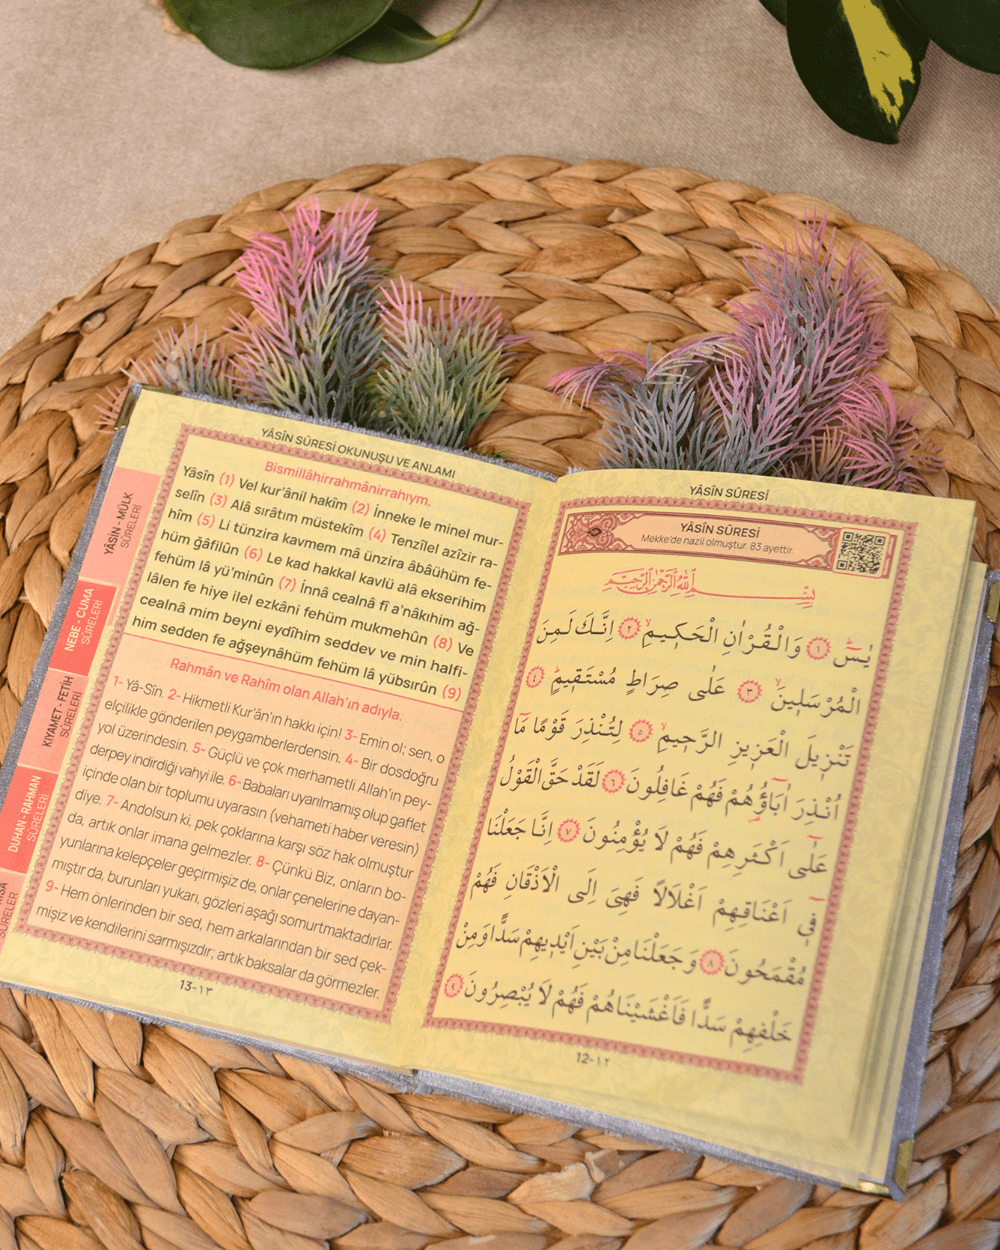 YÂSÎN SÛRESİ OKUNUŞU VE ANLAMI
Bismillâhirrahmânirrahıym.
Yâsîn (1) Vel kur'ânil hakîm (2) İnneke le minel mur-
selîn (3) Alâ sırâtım müstekîm (4) Tenzîlel azîzir ra-
hîm (5) Li tünzira kavmem mâ ünzira âbâühüm fe-
hüm ğâfilûn (6) Le kad hakkal kavlü alâ ekserihim
fehüm lâ yü'minûn (7) İnnâ cealnâ fî a'nâkıhim ağ-
lâlen fe hiye ilel ezkâni fehüm mukmehûn (8) Ve
cealnâ mim beyni eydîhim seddev ve min halfi-
him sedden fe ağşeynâhüm fehüm lâ yübsırûn (9)
Rahmân ve Rahîm olan Allah'ın adıyla.
1- Yâ-Sîn. 2- Hikmetli Kur'ân'ın hakkı için! 3- Emin ol; sen, o
elçilikle gönderilen peygamberlerdensin. 4- Bir dosdoğru
yol üzerindesin. 5- Güçlü ve çok merhametli Allah'ın pey-
derpey indirdiği vahyi ile. 6- Babaları uyarılmamış olup gaflet
içinde olan bir toplumu uyarasın (vehameti haber veresin)
diye. 7- Andolsun ki, pek çoklarına karşı söz hak olmuştur
da, artık onlar imana gelmezler. 8- Çünkü Biz, onların bo-
yunlarına kelepçeler geçirmişiz de, onlar çenelerine dayan-
mıştır da, burunları yukarı, gözleri aşağı somurtmaktadırlar.
9- Hem önlerinden bir sed, hem arkalarından bir sed çek-
mişiz ve kendilerini sarmışızdır; artık baksalar da görmezler.
13-١٣
YÂSÎN - MÜLK
SÛRELERİ
NEBE - CUMA
SÛRELERİ
KIYAMET - FETİH
SÛRELERİ
DUHAN - RAHMAN
SÛRELERİ
YÂSÎN SÛRESİ
YÂSÎN SÛRESİ
Mekke'de nazil olmuştur. 83 ayettir.
بِسْمِ اللّٰهِ الرَّحْمٰنِ الرَّحِيمِ
يٰسٓ ﴿١﴾ وَالْقُرْاٰنِ الْحَكِيمِ ﴿٢﴾ اِنَّكَ لَمِنَ
الْمُرْسَلِينَ ﴿٣﴾ عَلٰى صِرَاطٍ مُسْتَقِيمٍ ﴿٤﴾
تَنْزِيلَ الْعَزِيزِ الرَّحِيمِ ﴿٥﴾ لِتُنْذِرَ قَوْمًا مَٓا
اُنْذِرَ اٰبَٓاؤُ۬هُمْ فَهُمْ غَافِلُونَ ﴿٦﴾ لَقَدْ حَقَّ الْقَوْلُ
عَلٰٓى اَكْثَرِهِمْ فَهُمْ لَا يُؤْمِنُونَ ﴿٧﴾ اِنَّا جَعَلْنَا
فِٓي اَعْنَاقِهِمْ اَغْلَالًا فَهِيَ اِلَى الْاَذْقَانِ فَهُمْ
مُقْمَحُونَ ﴿٨﴾ وَجَعَلْنَا مِنْ بَيْنِ اَيْدِيهِمْ سَدًّا وَمِنْ
خَلْفِهِمْ سَدًّا فَاَغْشَيْنَاهُمْ فَهُمْ لَا يُبْصِرُونَ ﴿٩﴾
12-١٢